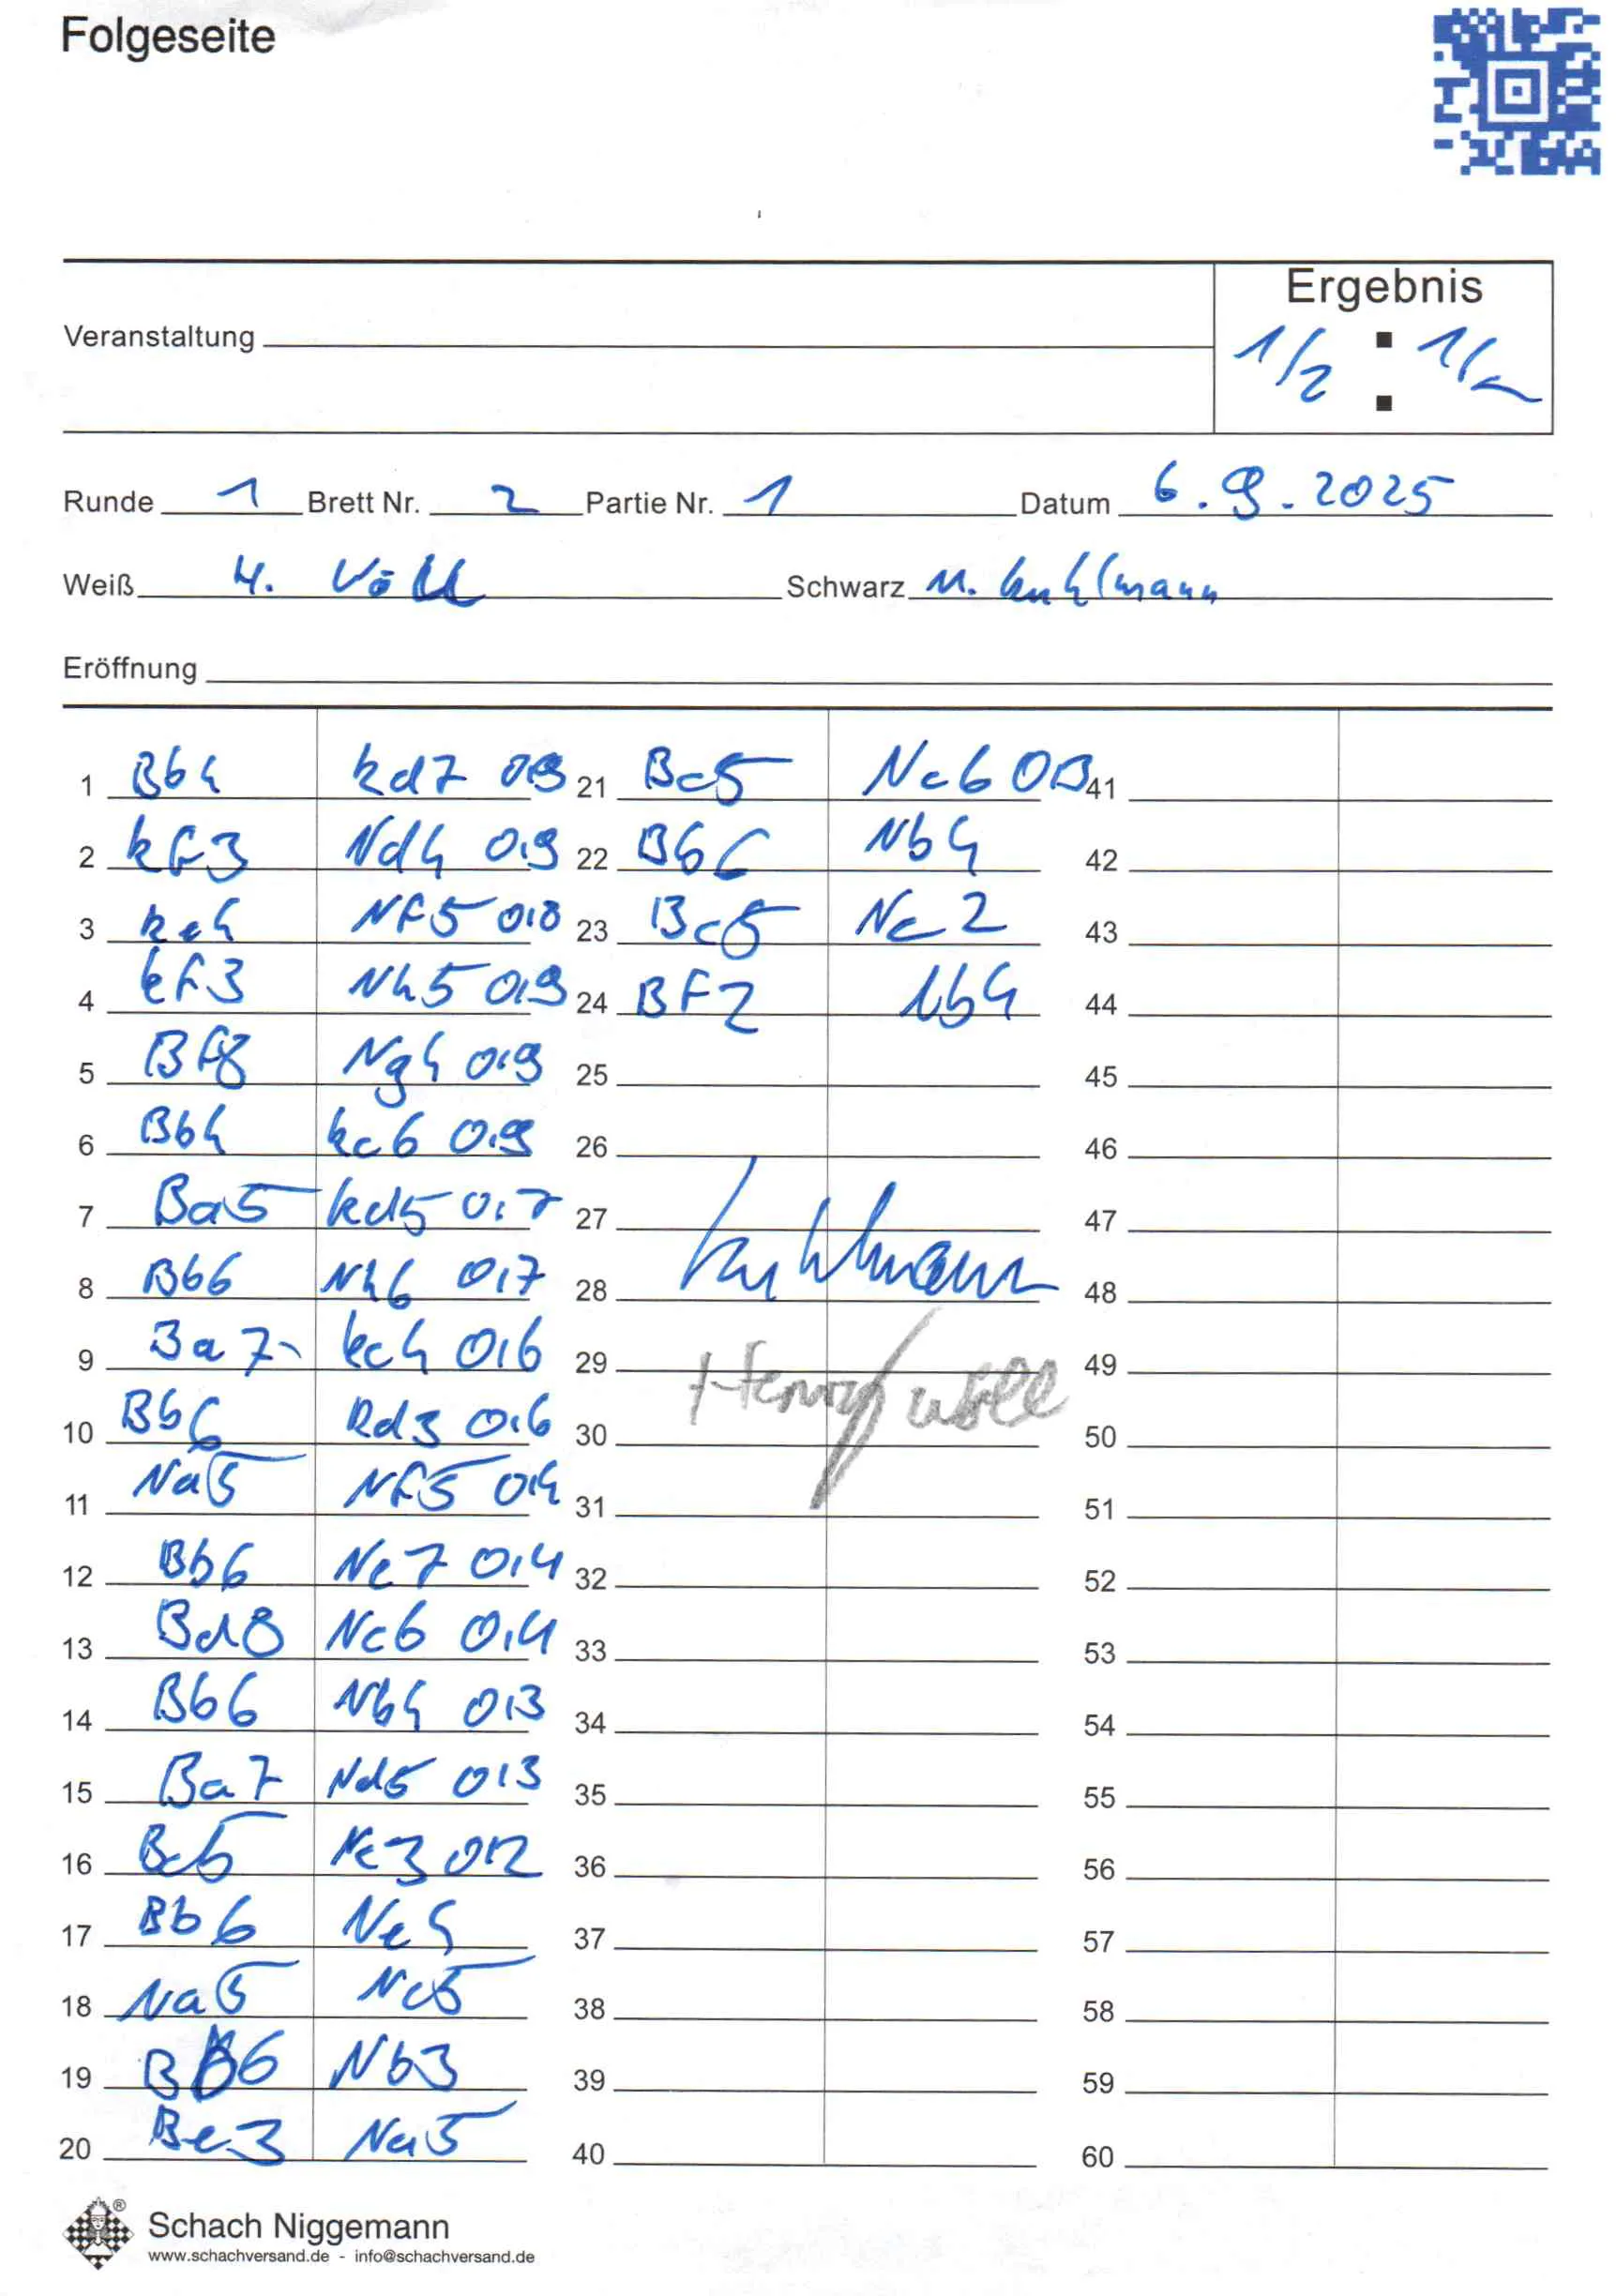 Folgeseite
Ergebnis
Veranstaltung
1/2 : 1/2
Runde 1 Brett Nr. 2 Partie Nr. 1 Datum 6.9.2025
Weiß H. Völl Schwarz M. Kuhlmann
Eröffnung
1 Bb4 kd7 0.9 21 Bc5 Nc6 0.3 41
2 kf3 Nd4 0.9 22 Bb6 Nb4 42
3 ke4 Nf5 0.8 23 Bc5 Nc2 43
4 kf3 Nh5 0.9 24 BF2 Nb4 44
5 Bf8 Ng4 0.9 25 45
6 Bb4 kc6 0.9 26 46
7 Ba5 kd5 0.7 27 47
8 Bb6 Nh6 0.7 28 Kuhlmann 48
9 Ba7 kc4 0.6 29 Henry Völl 49
10 Bb6 kd3 0.6 30 50
11 Na5 Nf5 0.4 31 51
12 Bb6 Ne7 0.4 32 52
13 Bd8 Nc6 0.4 33 53
14 Bb6 Nb4 0.3 34 54
15 Ba7 Nd5 0.3 35 55
16 Bc5 Nc3 0.2 36 56
17 Bb6 Ne4 37 57
18 Na5 Nc5 38 58
19 Bb6 Nb3 39 59
20 Be3 Na5 40 60
®
Schach Niggemann
www.schachversand.de - info@schachversand.de